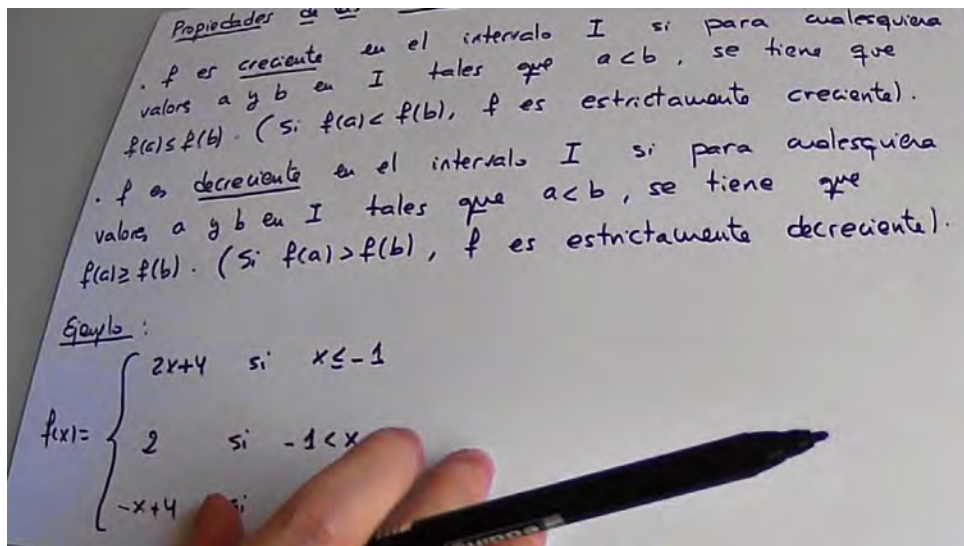 Propiedades de
. f es creciente en el intervalo I si para cualesquiera
valores a y b en I tales que a<b, se tiene que
f(a)≤f(b). (Si f(a)<f(b), f es estrictamente creciente).
. f es decreciente en el intervalo I si para cualesquiera
valores a y b en I tales que a<b, se tiene que
f(a)≥f(b). (Si f(a)>f(b), f es estrictamente decreciente).
Ejemplo:
2x+4 si x≤-1
f(x)=
2 si -1<x
-x+4 si